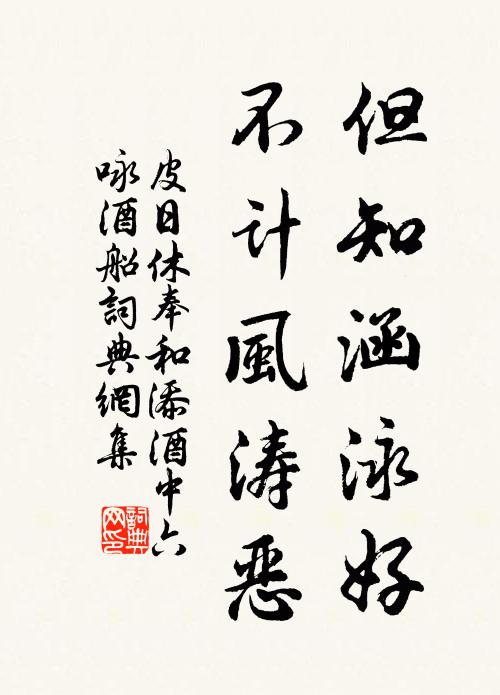 但知涵泳好
不计風涛恶
皮日休奉和添酒中六
咏酒船詞典網集
詞典
网印